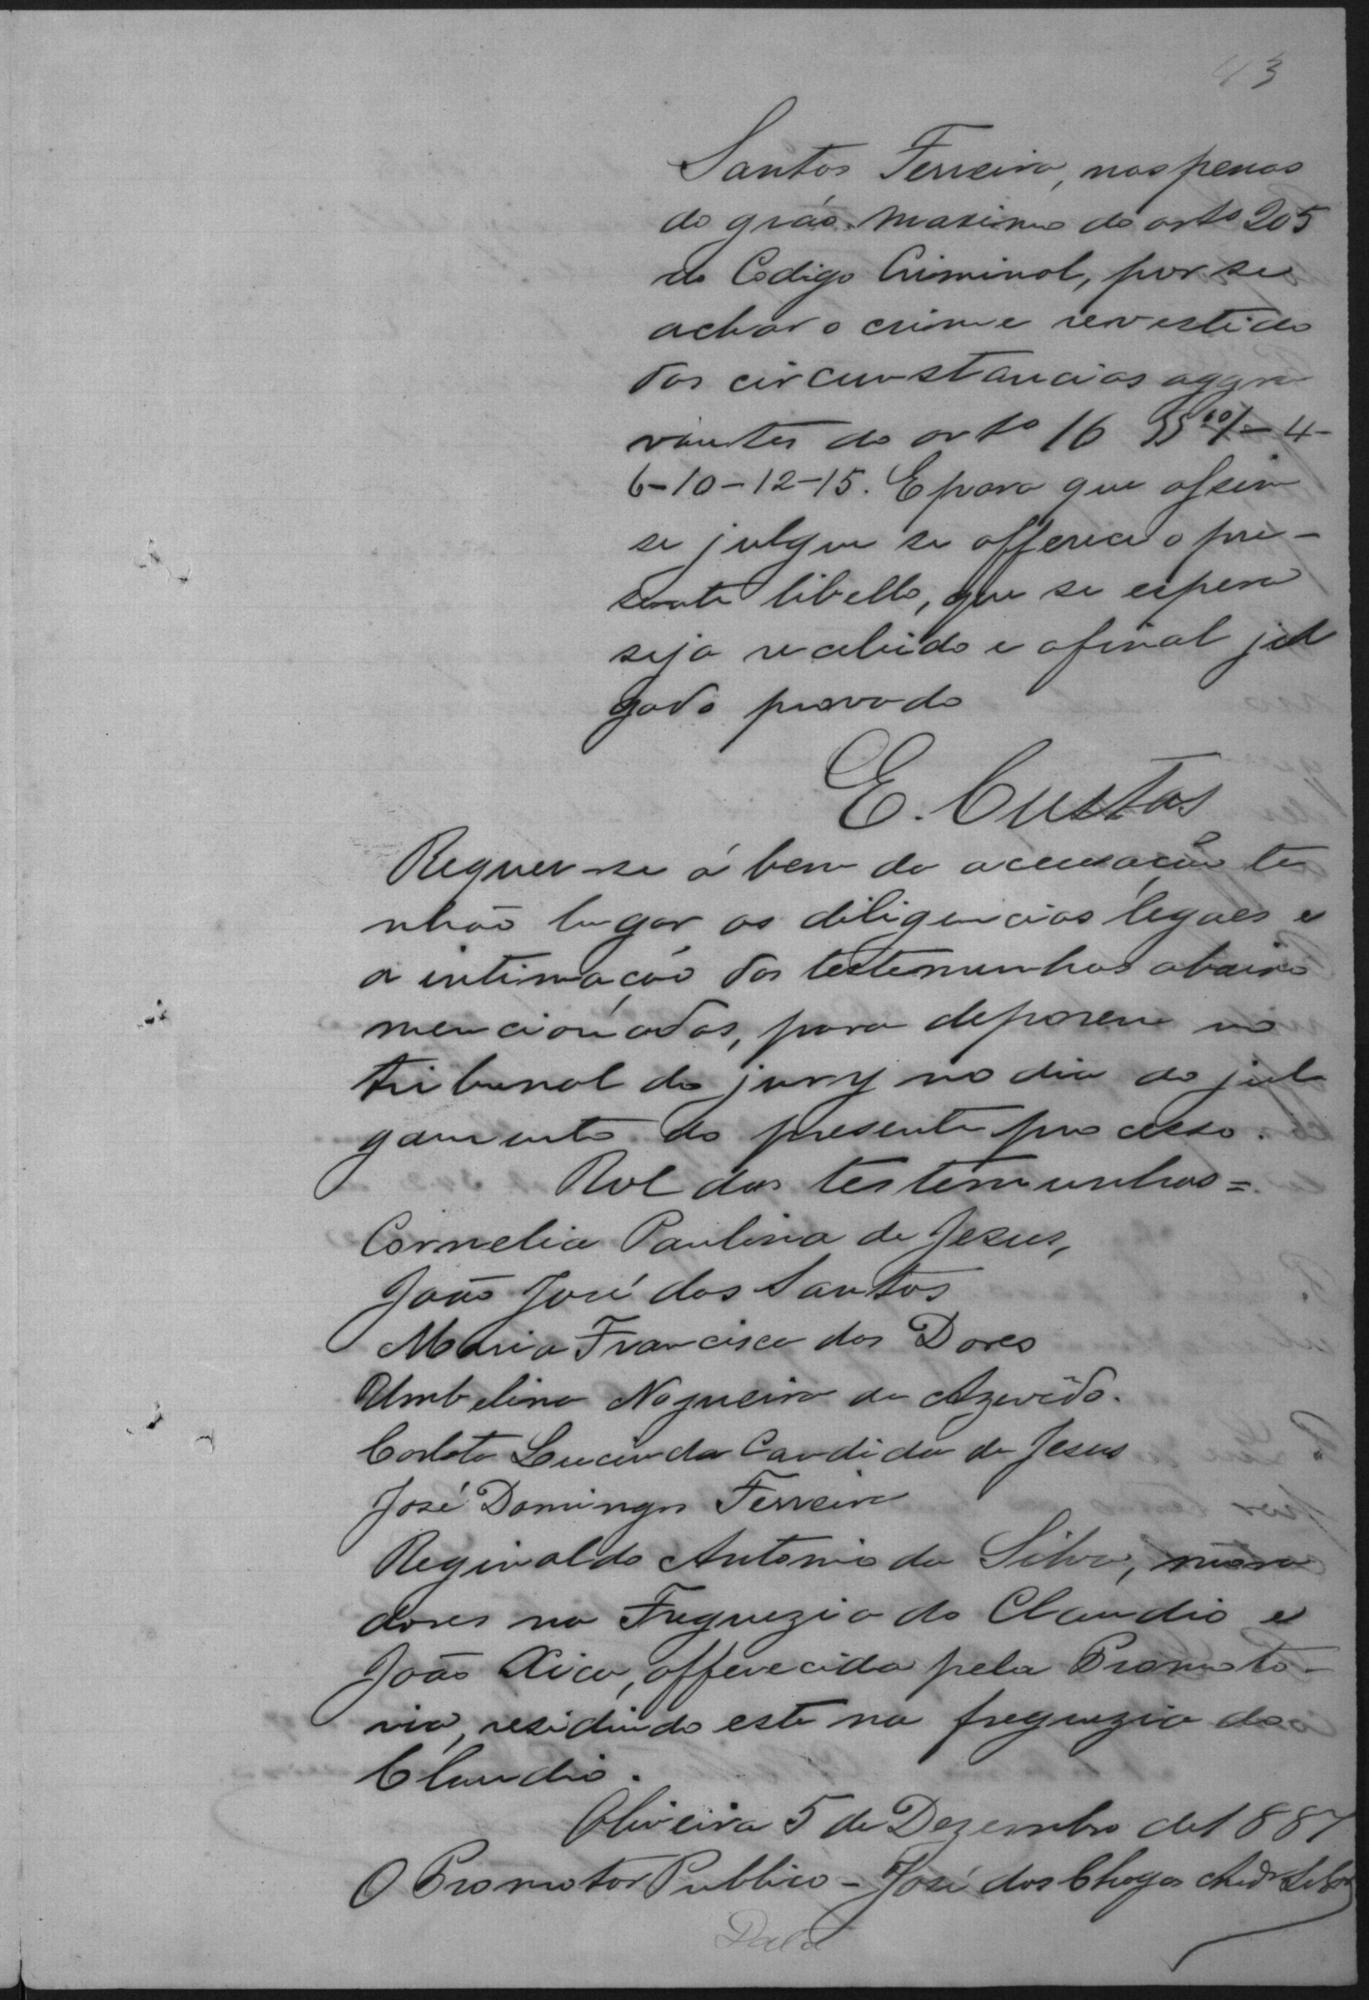 43
Santos Ferreira, nas penas
do gráo maximo do artº 205
do Codigo Criminal, por se
achar o crime revestido
das circunstancias aggra
vantes do artº 16 §§ 1-4-
6-10-12-15. E para que assim
se julgue se offerece o pre-
sente libello, que se espera
seja recebido e afinal jul
gado provado
E. Custas
Requer-se á bem da accusação te
nhão lugar as diligencias legaes e
a intimação das testemunhas abaixo
mencionadas, para deporem no
tribunal do jury no dia do jul
gamento do presente processo.
Rol das testemunhas=
Cornelia Paulina de Jesus,
João José dos Santos
Maria Francisca das Dores
Umbelino Nogueira de Azevêdo.
Carlota Lucinda Candida de Jesus
José Domingos Ferreira
Reginaldo Antonio da Silva, mora
dores na Freguezia do Claudio e
João Xico, offerecida pela Promoto-
ria, residindo este na freguezia do
Claudio.
Oliveira 5 de Dezembro de 1887
O Promotor Publico - José das Chagas
Data